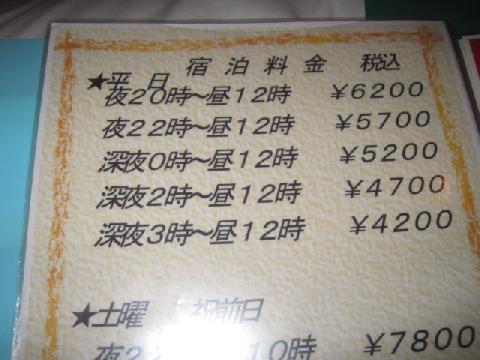 宿泊料金 税込
★平日
夜20時～昼12時 ￥6200
夜22時～昼12時 ￥5700
深夜0時～昼12時 ￥5200
深夜2時～昼12時 ￥4700
深夜3時～昼12時 ￥4200
★土曜 祝前日
夜22 10時 ￥7800